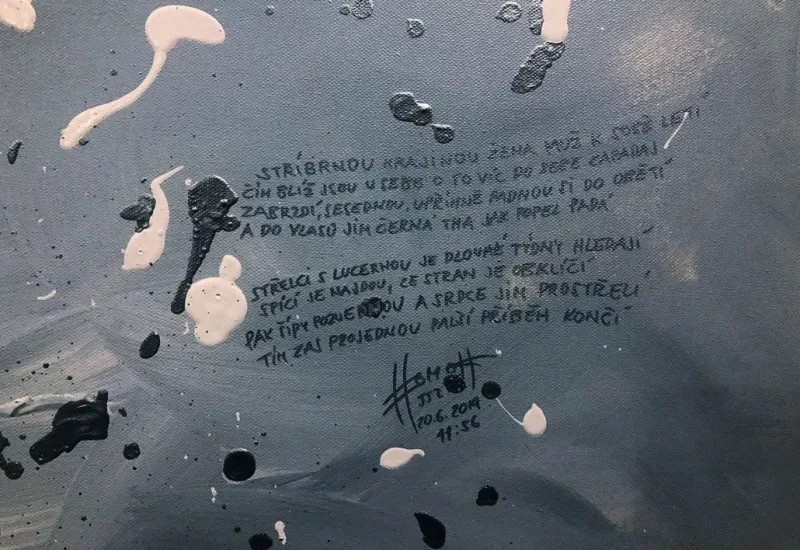 STŘÍBRNOU KRAJINOU ŽENA MUŽ K SOBĚ LETÍ
ČÍM BLÍŽ JSOU U SEBE O TO VÍC DO SEBE ZAPADAJ
ZABRZDÍ, SESEDNOU, UPŘÍMNĚ PADNOU SI DO OBĚTÍ
A DO VLASŮ JIM ČERNÁ TMA JAK POPEL PADÁ
STŘELCI S LUCERNOU JE DLOUHÉ TÝDNY HLEDAJÍ
SPÍCÍ JE NAJDOU, ZE STRAN JE OBKLÍČÍ
PAK ŠÍPY POZVEDNOU A SRDCE JIM PROSTŘELÍ
TÍM ZAS PROJEDNOU DALŠÍ PŘÍBĚH KONČÍ
20.6.2019
11:56